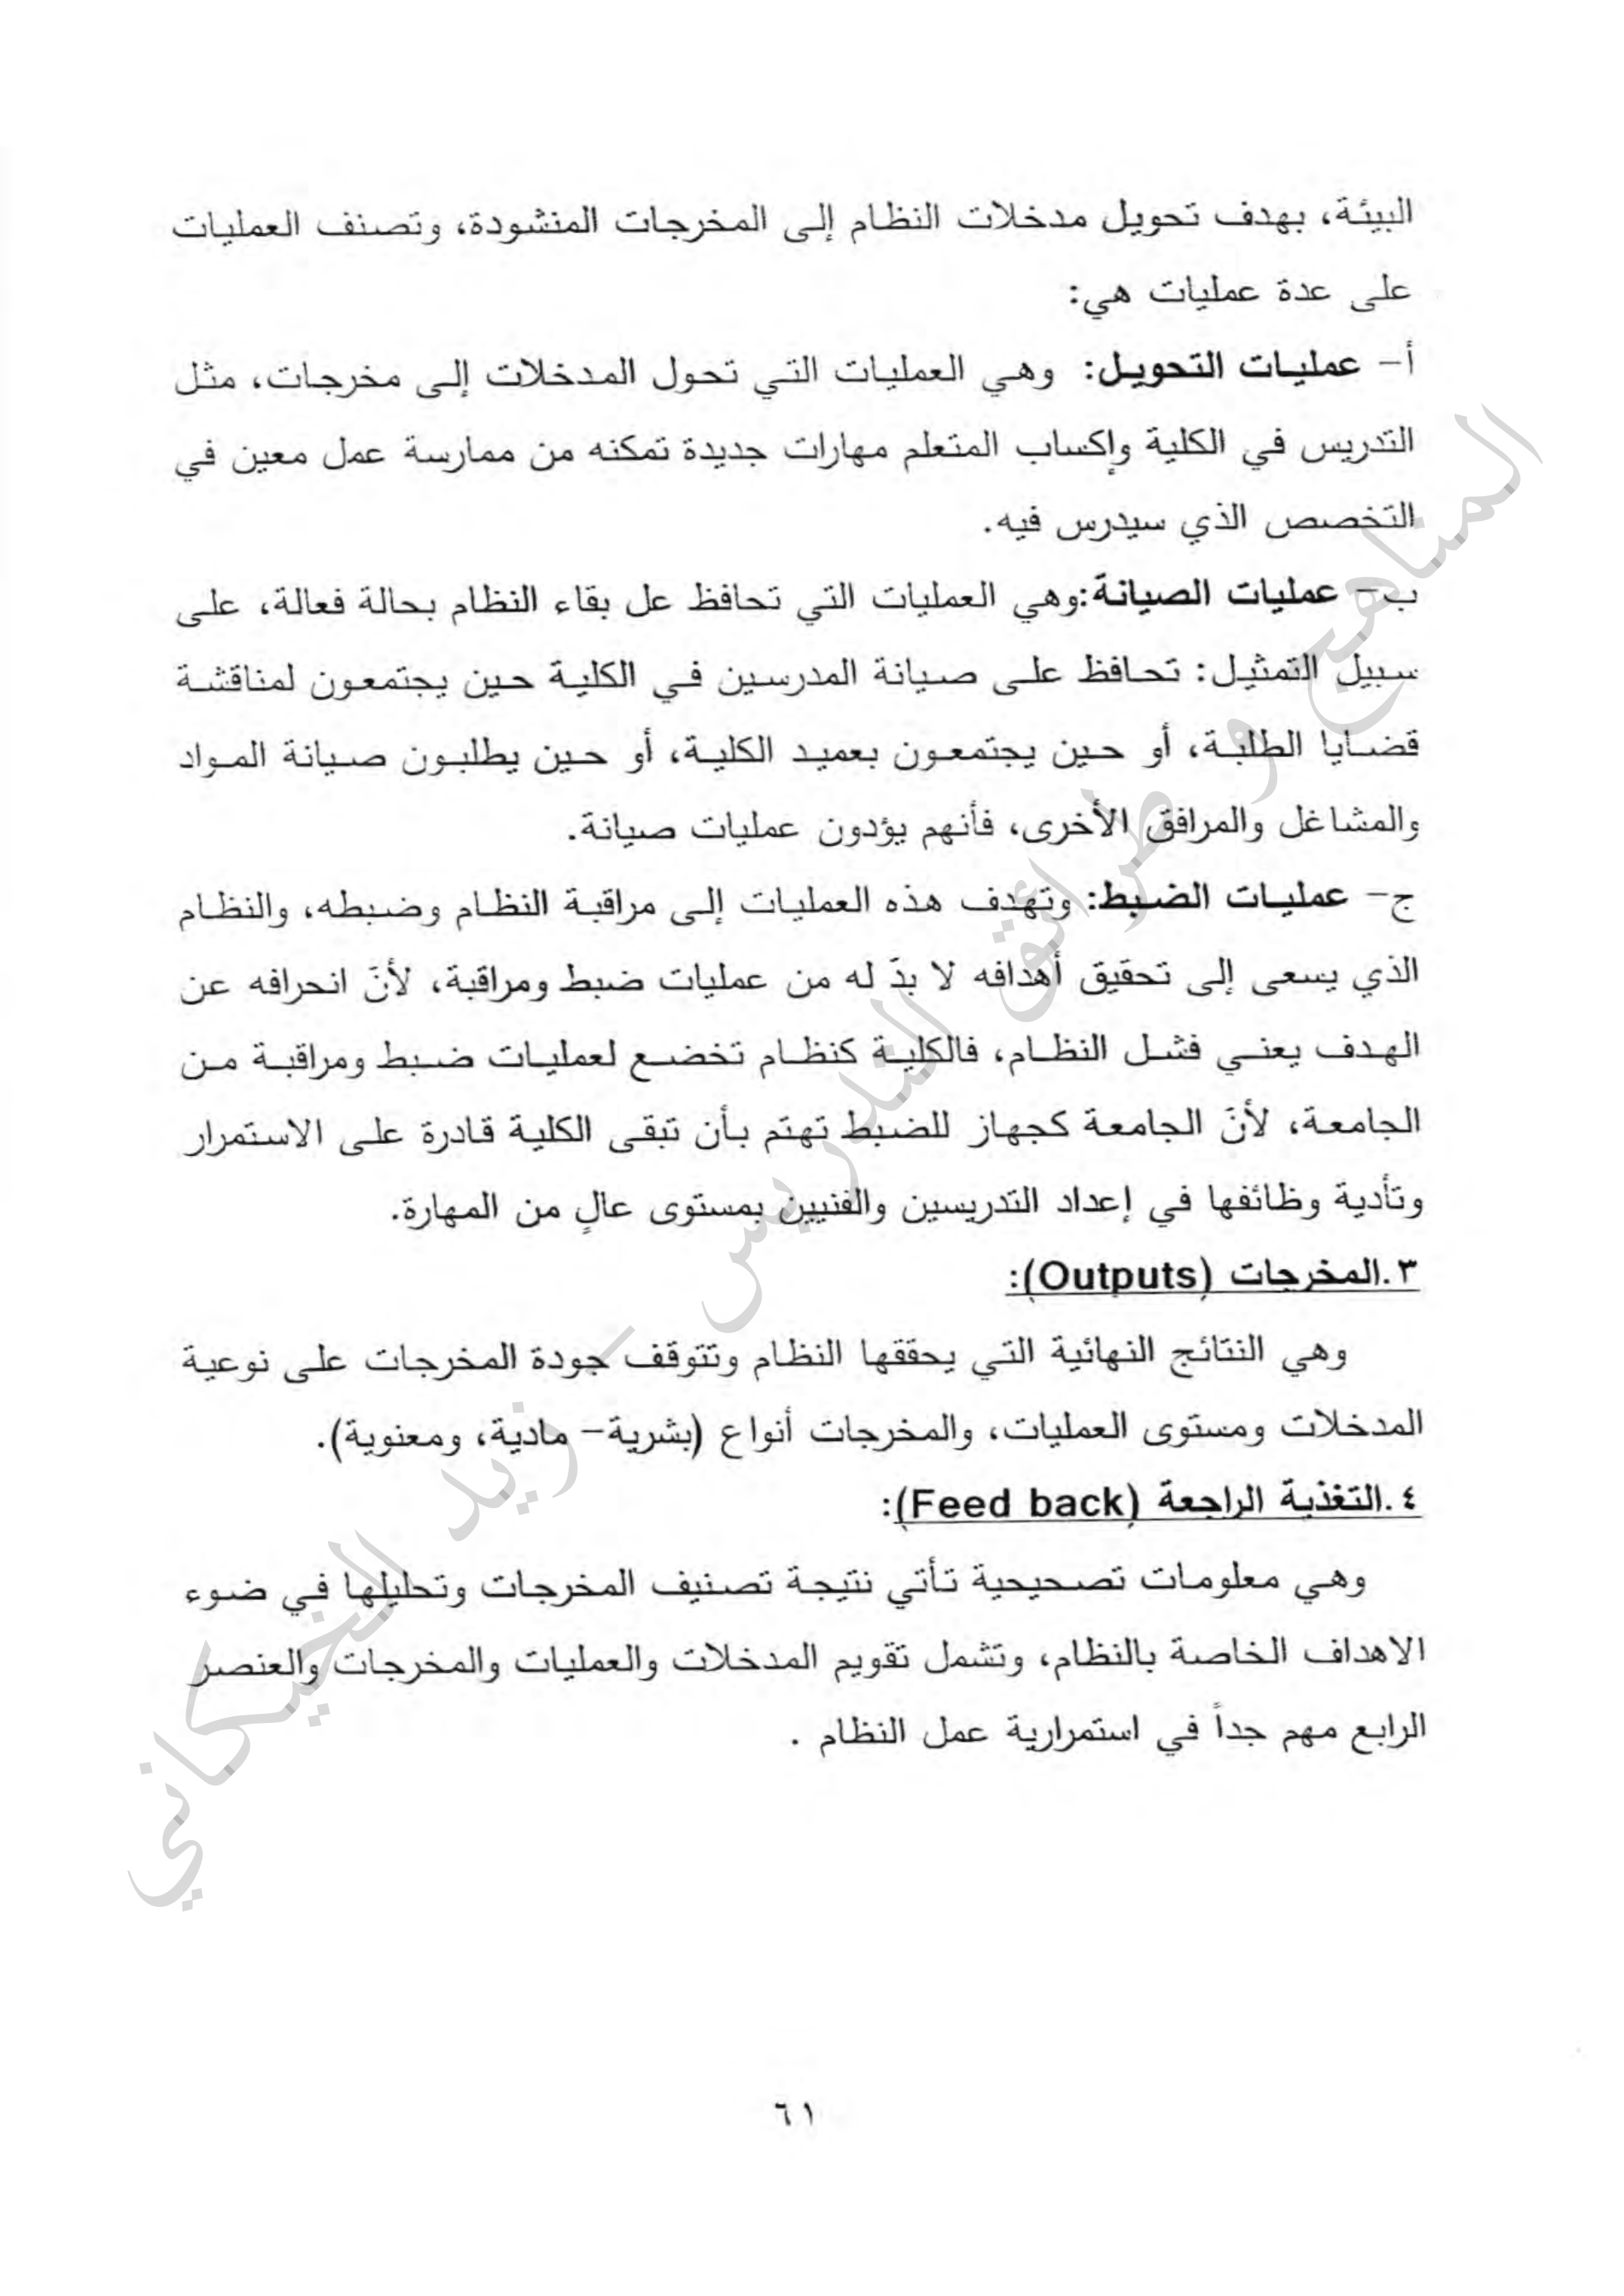 البيئة، بهدف تحويل مدخلات النظام إلى المخرجات المنشودة، وتصنف العمليات
على عدة عمليات هي:
أ- عمليات التحويل: وهي العمليات التي تحول المدخلات إلى مخرجات، مثل
التدريس في الكلية وإكساب المتعلم مهارات جديدة تمكنه من ممارسة عمل معين في
التخصص الذي سيدرس فيه.
ب- عمليات الصيانة:وهي العمليات التي تحافظ عل بقاء النظام بحالة فعالة، على
سبيل التمثيل: تحافظ على صيانة المدرسين في الكلية حين يجتمعون لمناقشة
قضايا الطلبة، أو حين يجتمعون بعميد الكلية، أو حين يطلبون صيانة المواد
والمشاغل والمرافق الأخرى، فأنهم يؤدون عمليات صيانة.
ج- عمليات الضبط: وتهدف هذه العمليات إلى مراقبة النظام وضبطه، والنظام
الذي يسعى إلى تحقيق أهدافه لا بدّ له من عمليات ضبط ومراقبة، لأنّ انحرافه عن
الهدف يعني فشل النظام، فالكلية كنظام تخضع لعمليات ضبط ومراقبة من
الجامعة، لأنّ الجامعة كجهاز للضبط تهتم بأن تبقى الكلية قادرة على الاستمرار
وتأدية وظائفها في إعداد التدريسين والفنيين بمستوى عالٍ من المهارة.
٣.المخرجات (Outputs):
وهي النتائج النهائية التي يحققها النظام وتتوقف جودة المخرجات على نوعية
المدخلات ومستوى العمليات، والمخرجات أنواع (بشرية- مادية، ومعنوية).
٤.التغذية الراجعة (Feed back):
وهي معلومات تصحيحية تأتي نتيجة تصنيف المخرجات وتحليلها في ضوء
الاهداف الخاصة بالنظام، وتشمل تقويم المدخلات والعمليات والمخرجات والعنصر
الرابع مهم جداً في استمرارية عمل النظام .
٦١
المناهج و طرائق التدريس - زيد الخيكاني